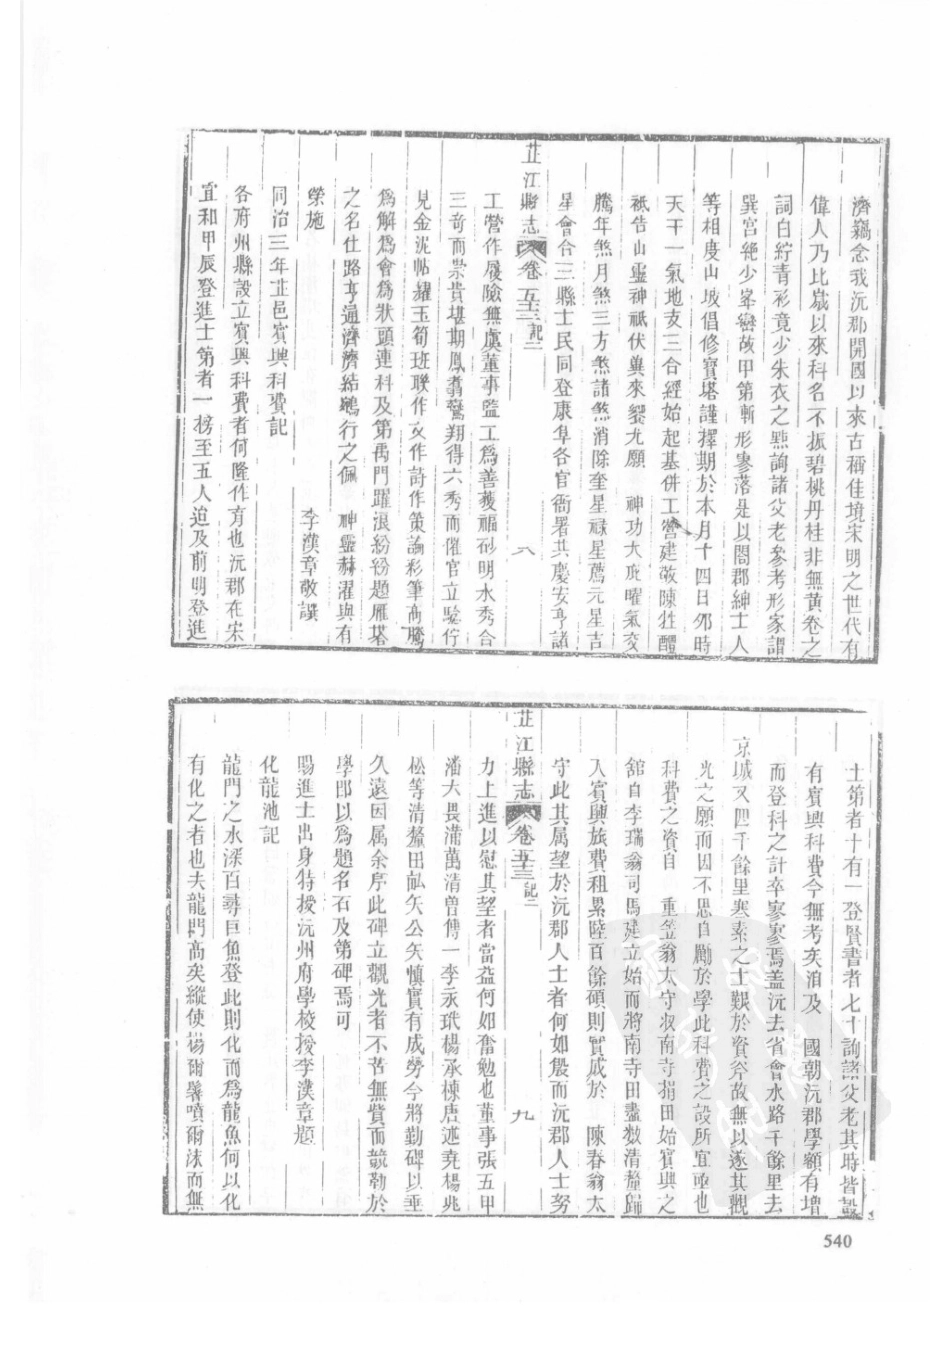 濟竊念我沅郡開國以來古稱佳境宋明之世代有
偉人乃比歲以來科名不振碧桃丹桂非無黃卷之
詞白紵青衫竟少朱衣之點詢諸父老參考形家謂
巽宮絶少峯巒故甲第漸形寥落是以闔郡紳士人
等相度山坡倡修寶塔謹擇期於本月十四日夘時
天干一氣地支三合經始起基併工營建敬陳牲醴
祇告山靈神祇伏冀來饗尤願　神功大庇曜氣交
騰年煞月煞三方煞諸煞消除奎星祿星薦元星吉
星會合三縣士民同登康阜各官衙署共慶安亨諸
芷江縣志　卷五十三記二　八
工營作履險無虞董事監工爲善獲福砂明水秀合
三奇而崇貴堪期鳳翥鸞翔得六秀而催官立騐佇
見金泥帖耀玉筍班聯作文作詩作策論彩筆高騰
爲解爲會爲狀頭連科及第禹門躍浪紛紛題雁塔
之名仕路亨通濟濟結鵷行之佩　神靈赫濯與有
榮施　李漢章敬譔
同治三年芷邑賓興科費記
各府州縣設立賓興科費者何隆作育也沅郡在宋
宣和甲辰登進士第者一榜至五人迨及前明登進
士第者十有一登賢書者七十詢諸父老其時皆設
有賓興科費今無考矣洎及　國朝沅郡學額有增
而登科之計卒寥寥焉盖沅去省會水路千餘里去
京城又四千餘里寒素之士艱於資斧故無以遂其觀
光之願而因不思自勵於學此科費之設所宜亟也
科費之資自　重笠翁太守収南寺捐田始賓興之
舘自李瑞翁司馬建立始而將南寺田畵数清釐歸
入賓興旅費租累陸百餘碩則實成於　陳春翁太
守此其属望於沅郡人士者何如殷而沅郡人士努
芷江縣志　卷五十三記二　九
力上進以慰其望者當益何如奮勉也董事張五甲
潘大畏蒲萬清曾傳一李永玳楊承棟唐遞堯楊兆
松等清釐田畝矢公矢愼實有成勞今將勤碑以垂
久遠因属余序此碑立觀光者不苦無貲而競勸於
學即以爲題名石及第碑焉可
賜進士出身特授沅州府學校授李漢章題
化龍池記
龍門之水深百尋巨魚登此則化而爲龍魚何以化
有化之者也夫龍門高矣縱使揚爾鬐噴爾沫而無
540